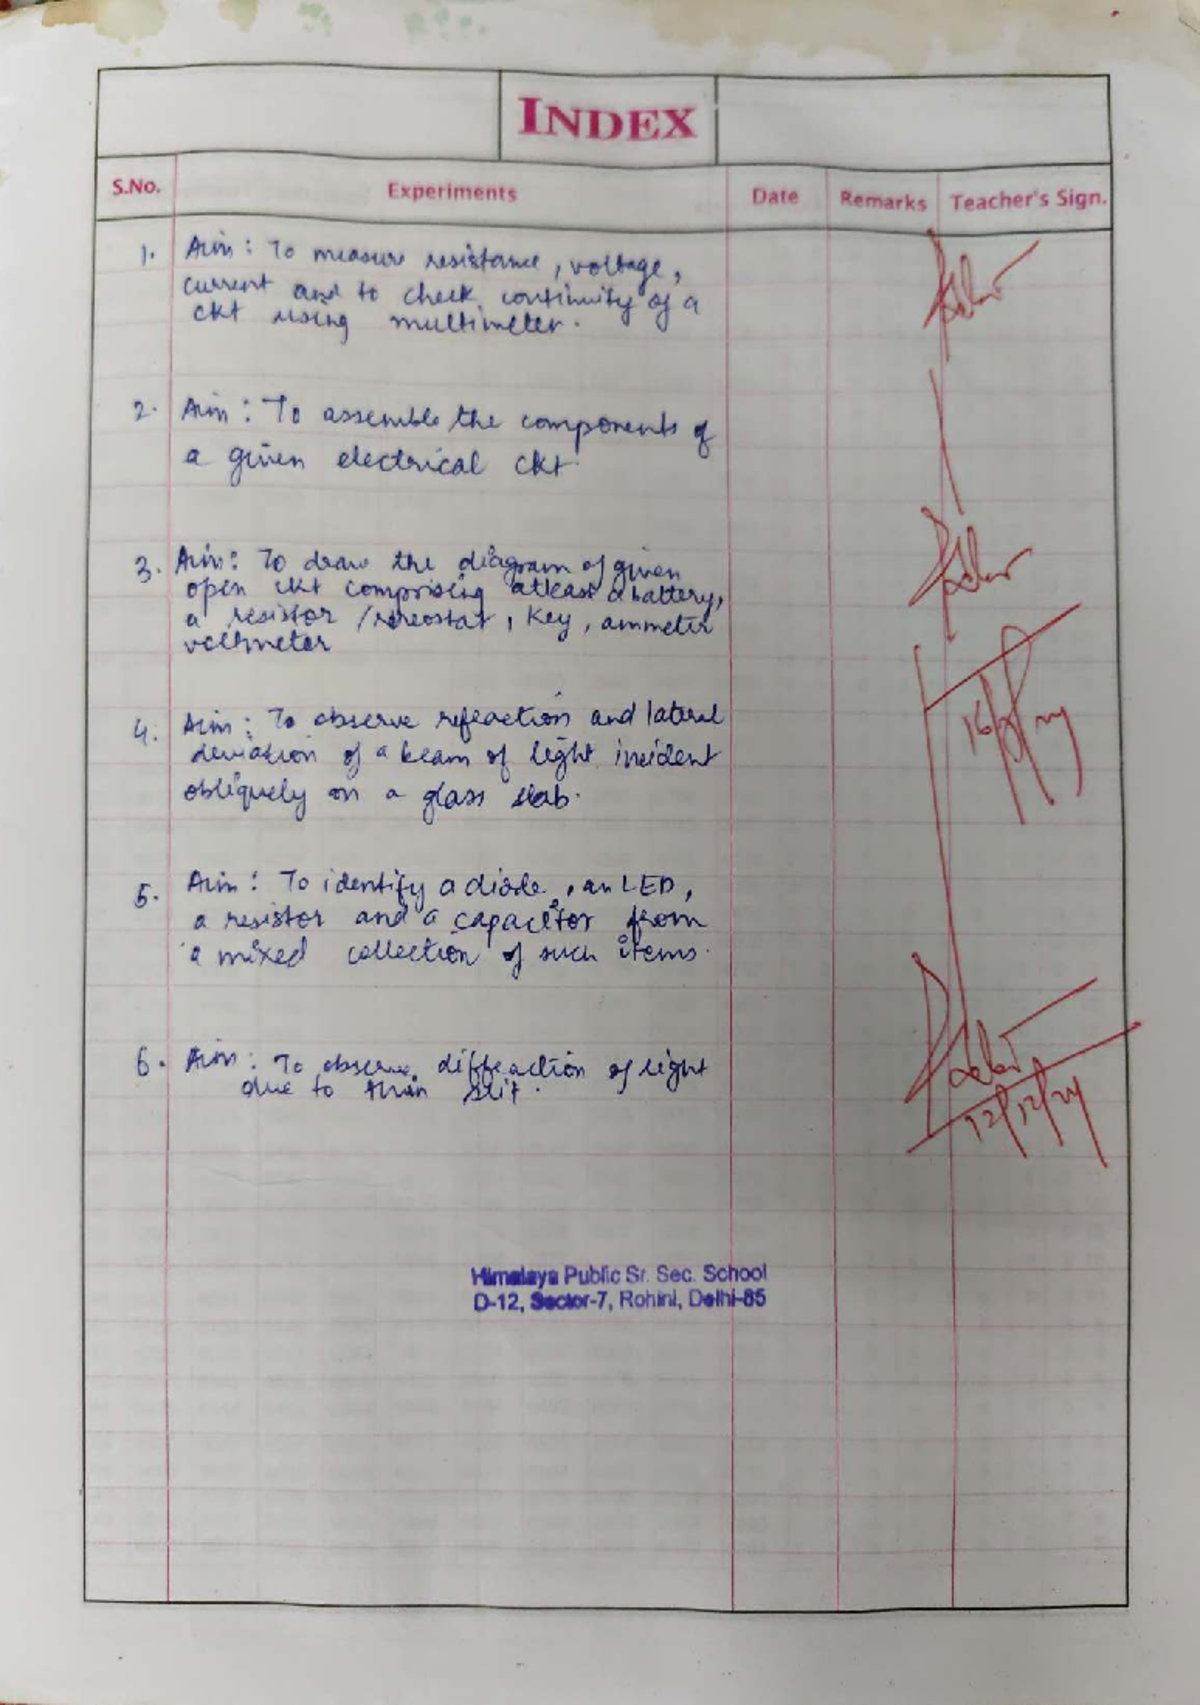 INDEX
S.No. Experiments Date Remarks Teacher's Sign.
1. Aim : To measure resistance, voltage,
current and to check continuity of a
ckt using multimeter.
2. Aim : To assemble the components of
a given electrical ckt
3. Aim : To draw the diagram of given
open ckt comprising atleast a battery,
a resistor / rheostat, Key, ammeter
voltmeter
16/ /24
4. Aim : To observe refraction and lateral
deviation of a beam of light incident
obliquely on a glass slab.
5. Aim : To identify a diode, an LED,
a resistor and a capacitor from
a mixed collection of such items.
6. Aim : To observe diffraction of light
due to thin slit.
12/12/24
Himalaya Public Sr. Sec. School
D-12, Sector-7, Rohini, Delhi-85